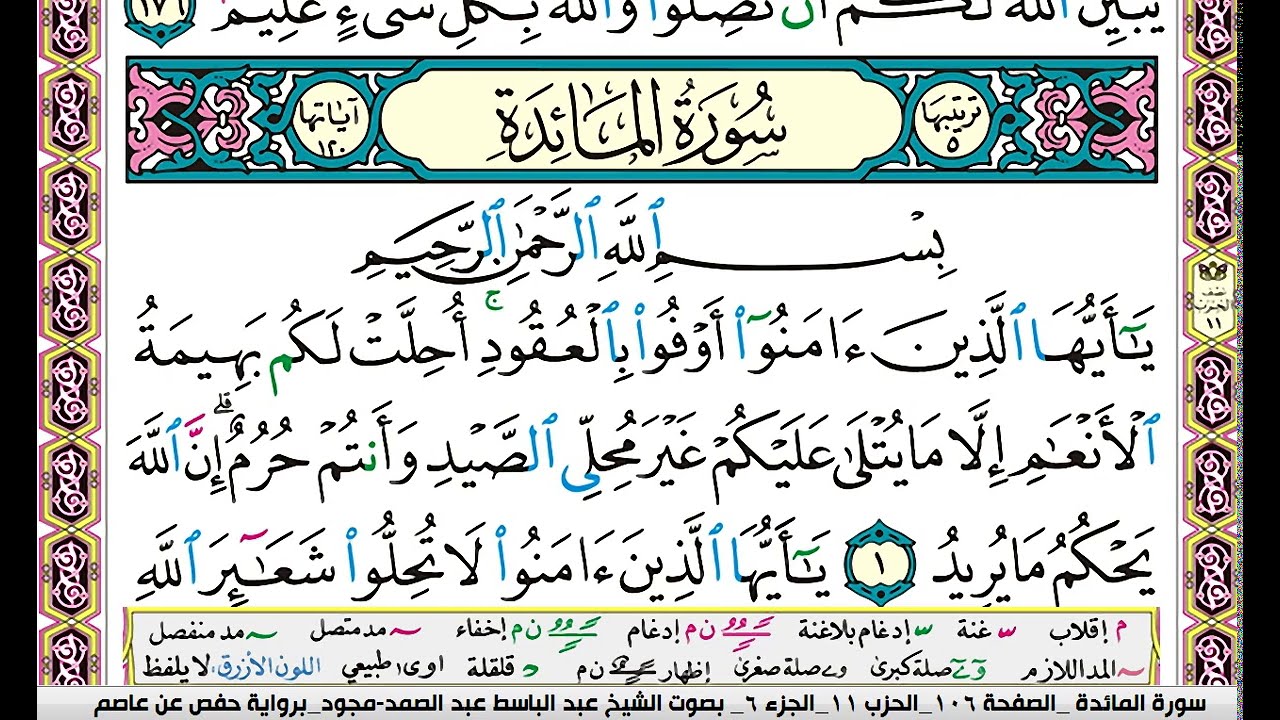 يُبَيِّنُ ٱللَّهُ لَكُمْ أَن تَضِلُّوا۟ وَٱللَّهُ بِكُلِّ شَىْءٍ عَلِيمٌ ١٧٦
ترتيبها ٥ سُورَةُ المَائِدَةِ آياتها ١٢٠
بِسْمِ ٱللَّهِ ٱلرَّحْمَٰنِ ٱلرَّحِيمِ
يَٰٓأَيُّهَا ٱلَّذِينَ ءَامَنُوٓا۟ أَوْفُوا۟ بِٱلْعُقُودِ ۚ أُحِلَّتْ لَكُم بَهِيمَةُ
ٱلْأَنْعَٰمِ إِلَّا مَا يُتْلَىٰ عَلَيْكُمْ غَيْرَ مُحِلِّى ٱلصَّيْدِ وَأَنتُمْ حُرُمٌ ۗ إِنَّ ٱللَّهَ
يَحْكُمُ مَا يُرِيدُ ١ يَٰٓأَيُّهَا ٱلَّذِينَ ءَامَنُوا۟ لَا تُحِلُّوا۟ شَعَٰٓئِرَ ٱللَّهِ
نصف الحزب ١١
م إقلاب س غنة س إدغام بلاغنة ن م إدغام ن م إخفاء مد متصل مد منفصل
المد اللازم صلة كبرى صلة صغرى ن م إظهار د قلقلة اوى طبيعي اللون الأزرق: لا يلفظ
سورة المائدة _الصفحة ١٠٦_الحزب ١١_الجزء ٦_ بصوت الشيخ عبد الباسط عبد الصمد-مجود_برواية حفص عن عاصم